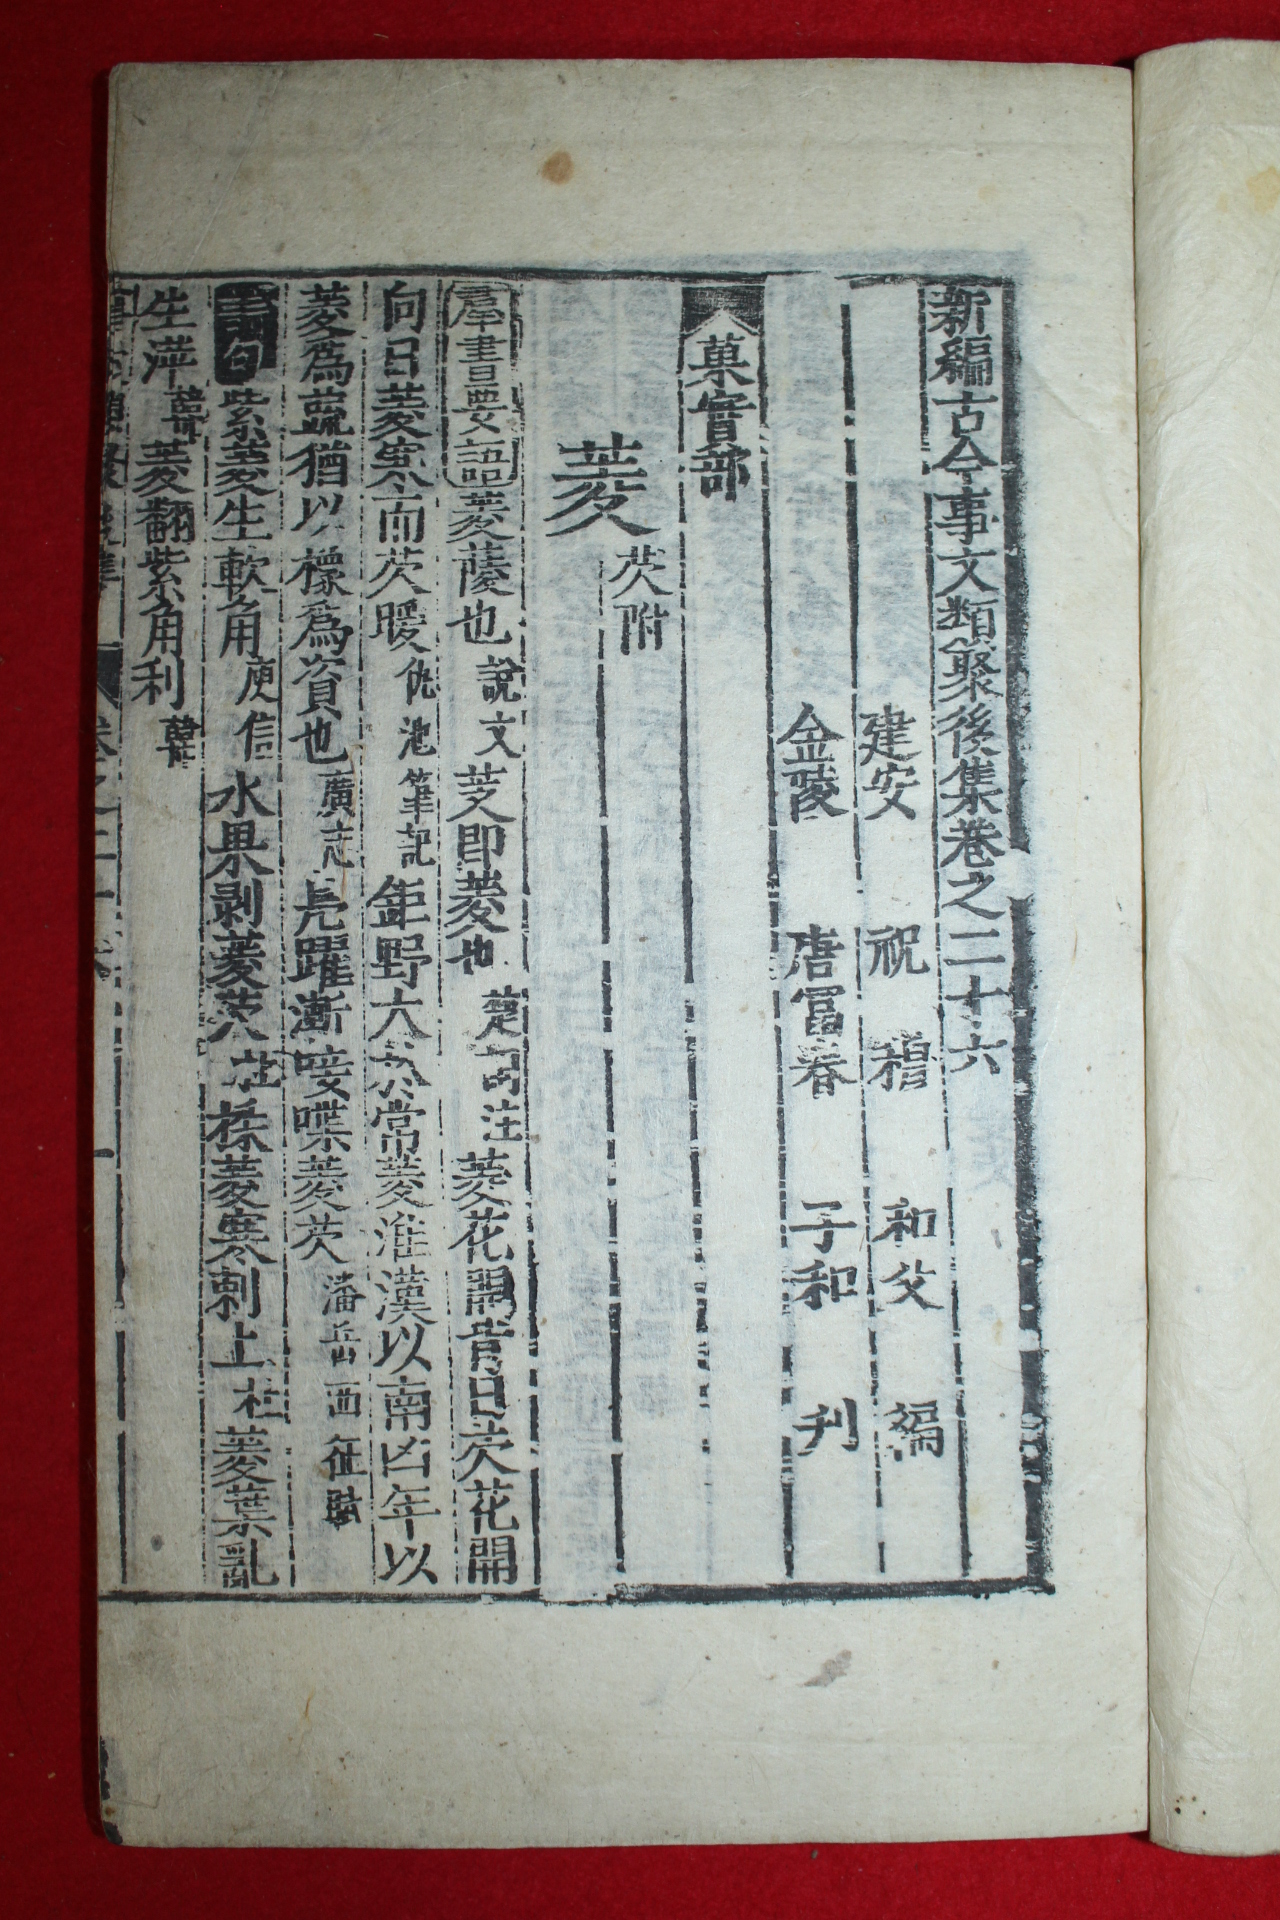 新編古今事文類聚後集巻之二十六
建安 祝 穆 和父 編
金陵 唐富春 子和 刋
菓實部
菱 芡附
羣書要語 菱蔆也 說文 芰即菱也 楚詞注 菱花開背日芡花開
向日菱寒而芡暖 仇池筆記 鉅野大 常菱淮漢以南凶年以
菱爲蔬猶以橡爲資也 廣志 虎躍漸 唼喋菱芡 潘岳西征賦
紫菱生軟角 庾信 水果剥菱芡 杜 採菱寒刺上 杜 菱葉乱
生萍 韓 菱翻紫角利 韓
卷之二十六 一